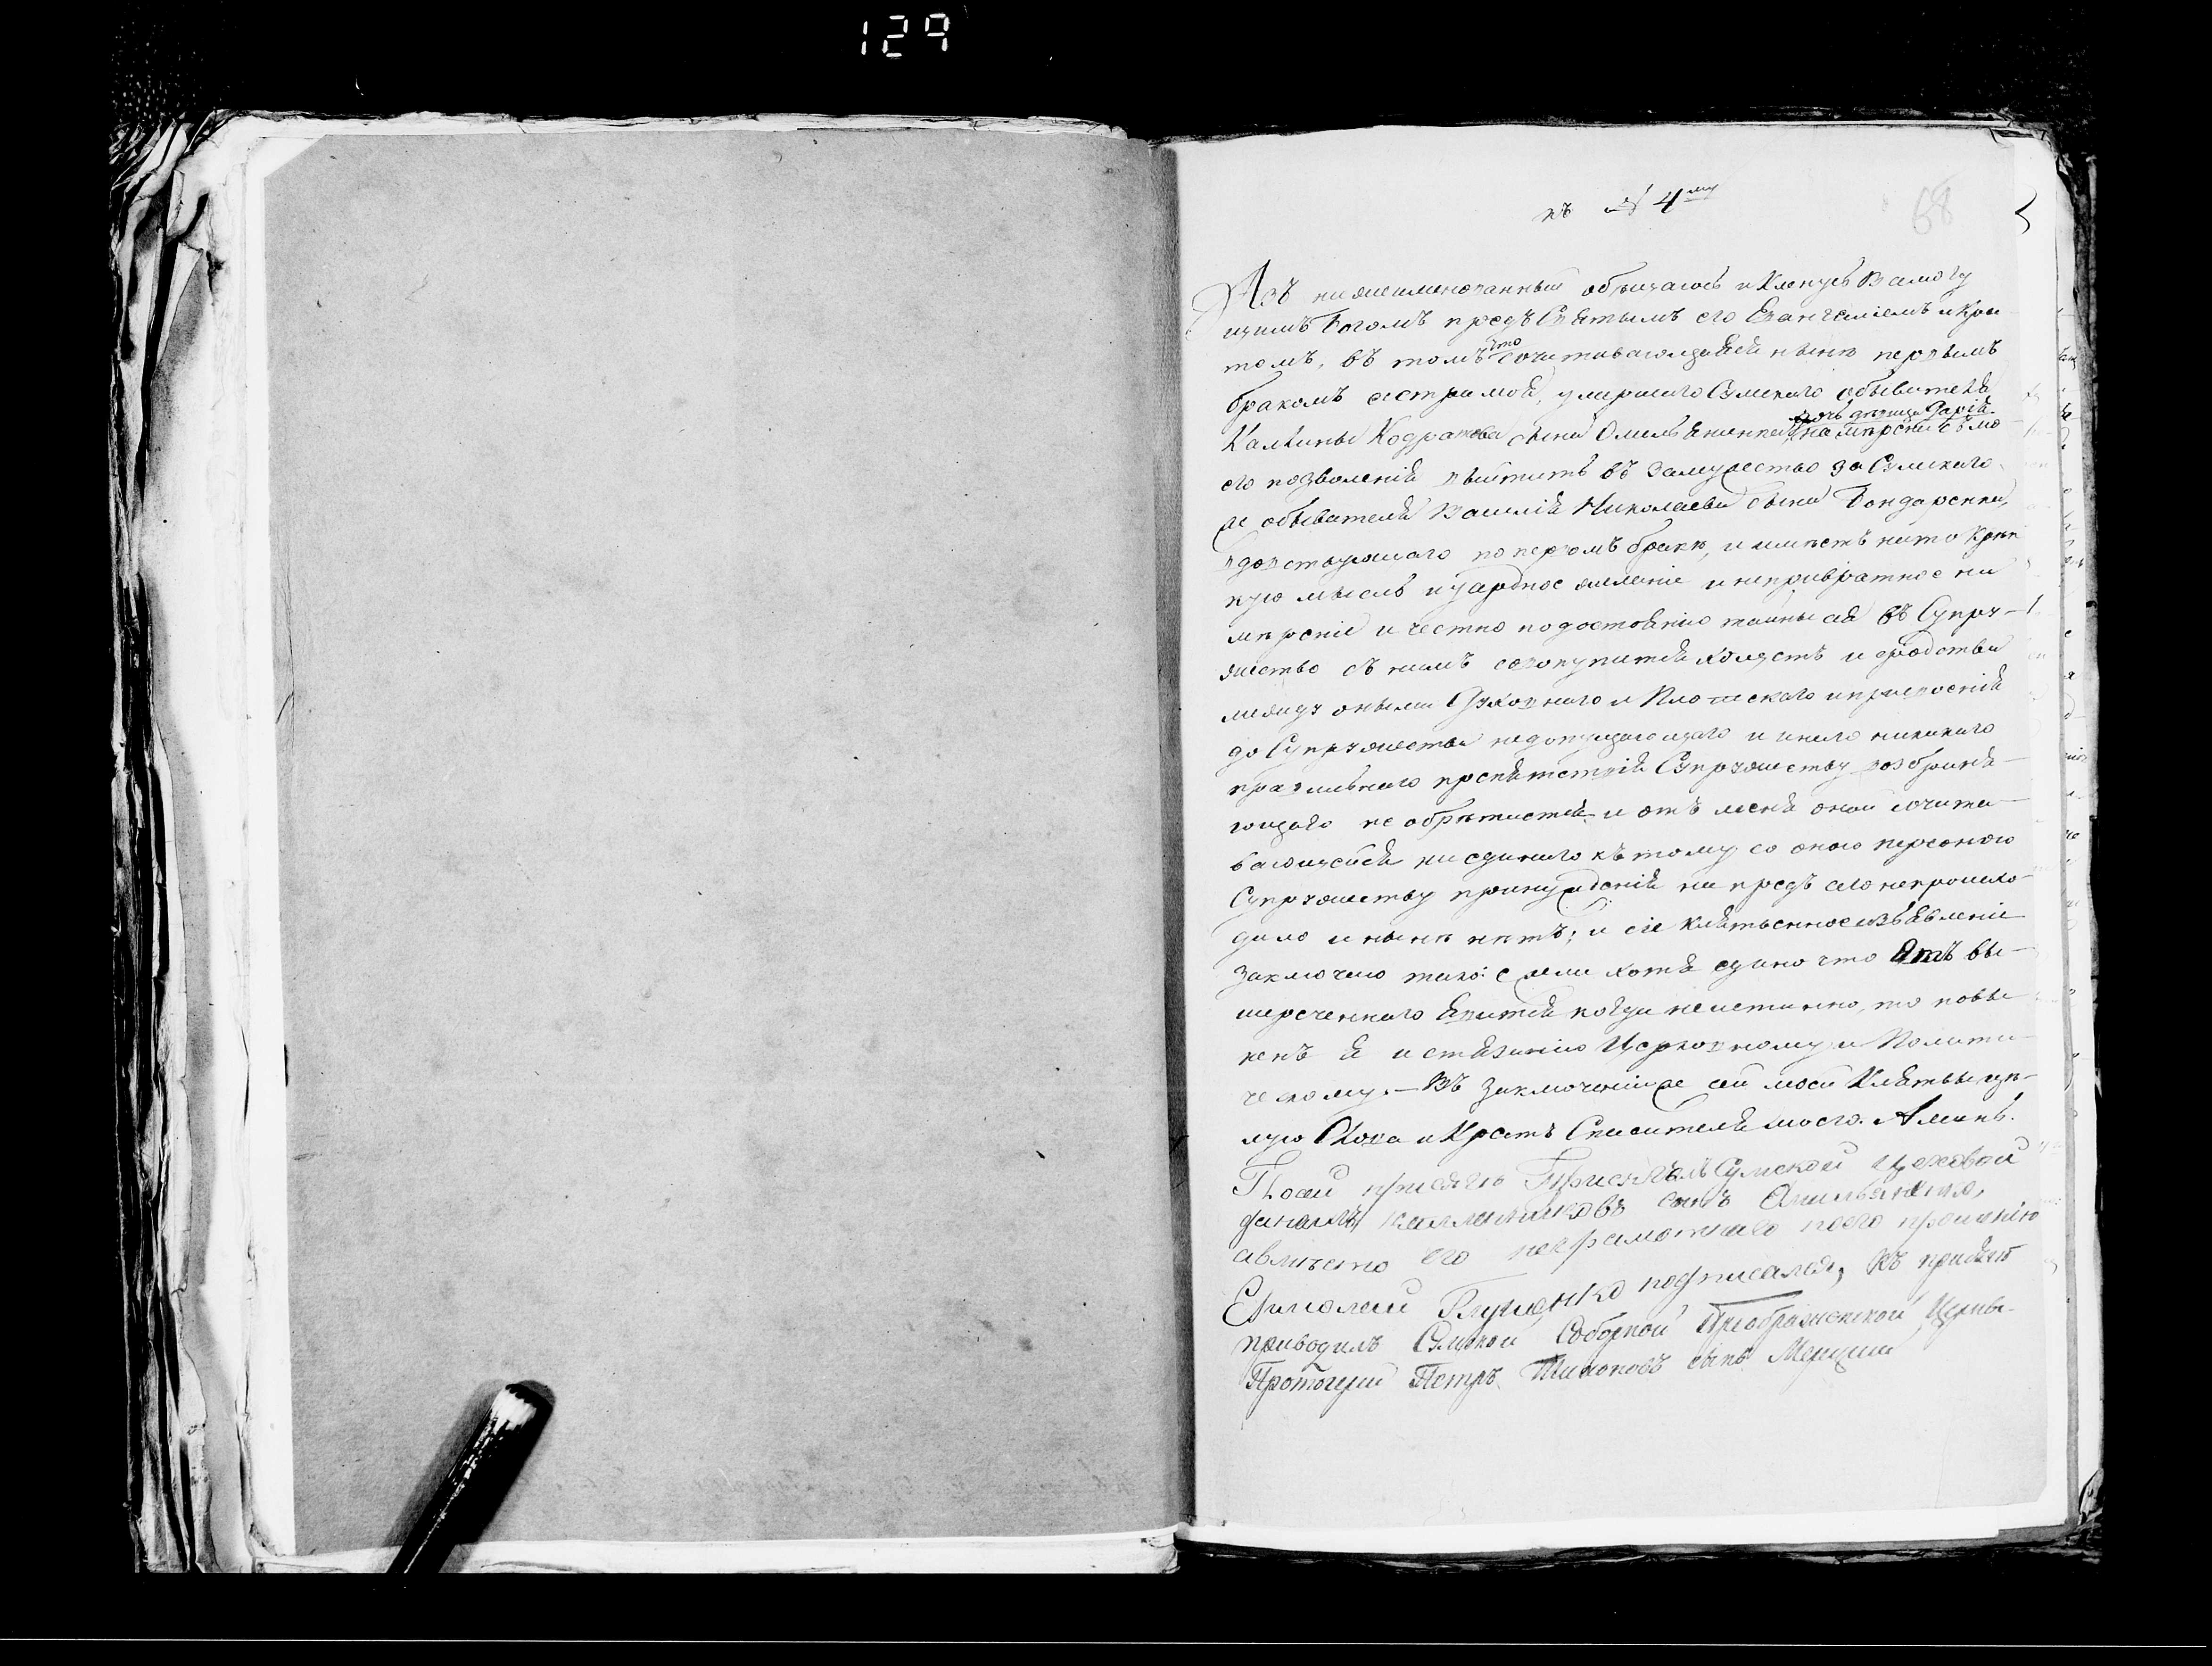 129
къ № 4му
68
Азъ нижеименованный обѣщаюсь и Кленусь Всемогу
щимъ Богомъ предъ Святымъ его Евангелiемъ и Крес
томъ, въ томъ что сочитавающаяся нынѣ первымъ
бракомъ сестра моя, умершаго Сумскаго обывателя
дочь девица Дарiя
Калины Кодратова сына Омельяненка, намѣренiе съ мо
его позволенiя выйтить въ замужество за Сумскаго
же обывателя Василiя Николаева сына Бондаренка,
вдовствующаго по первомъ бракѣ, и имѣетъ на то крѣп
кую мысль и усердное желанiе и непривратное на
мѣренiе и честно по достоянiю тайны сея въ Супру-
жество съ нимъ совокупится хощетъ и сродства
между оными Духовнаго и Плотскаго и присвоенiя
до Супружества недопущающаго и инаго никакого
правильнаго препятствiя Супружеству возбраня-
ющаго не обрѣтается и отъ меня оной сочита-
вающейся ни единаго къ тому со оною персоною
Супружеству принужденiя на предъ сего непроисхо-
дило и нынѣ нѣтъ; и сiе клятвенное изъявленiе
заключено тако: ежели хотя едино что Отъ вы-
шереченнаго Явится когда неистинно, то повы
ненъ я истязанiю Церковному и Полити-
ческому. — Въ заключенiи же сей моей Клятвы цѣ-
лую Слова и Крестъ Спасителя моего. Аминь.
По сей присягѣ Присягалъ Сумской Цеховой
сынъ Омильяненко,
а вмѣсто его неграмотнаго по его прошенiю
Ермолай Глущенко подписался, Къ присягѣ
приводилъ Сумской Соборной Преображенской Церкви
Протоиерей Петръ сынъ